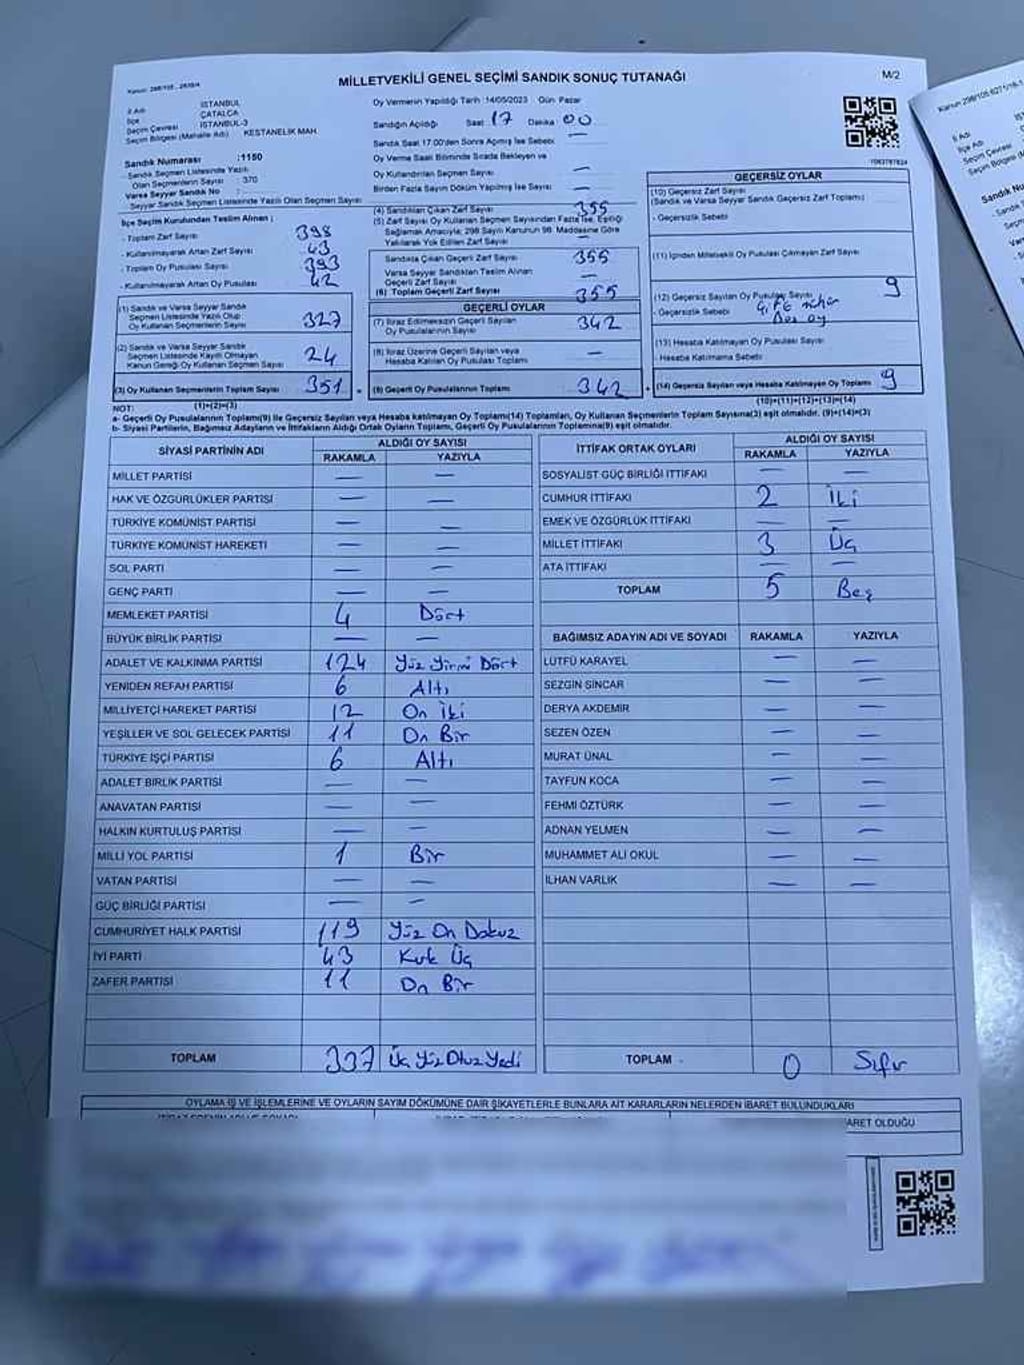 MİLLETVEKİLİ GENEL SEÇİMİ SANDIK SONUÇ TUTANAĞI
M/2
İl Adı İSTANBUL
İlçe ÇATALCA
Seçim Çevresi : İSTANBUL-3
Seçim Bölgesi (Mahalle Adı) KESTANELİK MAH.
Sandık Numarası :1150
Sandık Seçmen Listesinde Yazılı
Olan Seçmenlerin Sayısı : 370
Varsa Seyyar Sandık No :
Seyyar Sandık Seçmen Listesinde Yazılı Olan Seçmen Sayısı
Oy Vermenin Yapıldığı Tarih :14/05/2023 Gün Pazar
Sandığın Açıldığı Saat 17 Dakika 00
Sandık Saat 17.00'den Sonra Açılmış İse Sebebi —
Oy Verme Saati Bitiminde Sırada Bekleyen ve
Oy Kullandırılan Seçmen Sayısı —
Birden Fazla Sayım Döküm Yapılmış İse Sayısı —
İlçe Seçim Kurulundan Teslim Alınan ;
- Toplam Zarf Sayısı 398
- Kullanılmayarak Artan Zarf Sayısı 43
- Toplam Oy Pusulası Sayısı 393
- Kullanılmayarak Artan Oy Pusulası 42
(1) Sandık ve Varsa Seyyar Sandık
Seçmen Listesinde Yazılı Olup
Oy Kullanan Seçmenlerin Sayısı 327
(2) Sandık ve Varsa Seyyar Sandık
Seçmen Listesinde Kayıtlı Olmayan
Kanun Gereği Oy Kullanan Seçmen Sayısı 24
(3) Oy Kullanan Seçmenlerin Toplam Sayısı 351
(1)+(2)=(3)
(4) Sandıktan Çıkan Zarf Sayısı 355
(5) Zarf Sayısı Oy Kullanan Seçmen Sayısından Fazla İse, Eşitliği
Sağlamak Amacıyla; 298 Sayılı Kanunun 98. Maddesine Göre
Yakılarak Yok Edilen Zarf Sayısı
Sandıkta Çıkan Geçerli Zarf Sayısı 355
Varsa Seyyar Sandıktan Teslim Alınan
Geçerli Zarf Sayısı —
(6) Toplam Geçerli Zarf Sayısı 355
GEÇERLİ OYLAR
(7) İtiraz Edilmeksizin Geçerli Sayılan
Oy Pusulalarının Sayısı 342
(8) İtiraz Üzerine Geçerli Sayılan veya
Hesaba Katılan Oy Pusulası Toplamı —
(9) Geçerli Oy Pusulalarının Toplamı 342
1063787824
GEÇERSİZ OYLAR
(10) Geçersiz Zarf Sayısı
(Sandık ve Varsa Seyyar Sandık Geçersiz Zarf Toplamı)
- Geçersizlik Sebebi
(11) İçinden Milletvekili Oy Pusulası Çıkmayan Zarf Sayısı
(12) Geçersiz Sayılan Oy Pusulası Sayısı 9
- Geçersizlik Sebebi
Boş oy
(13) Hesaba Katılmayan Oy Pusulası Sayısı
- Hesaba Katılmama Sebebi
(14) Geçersiz Sayılan veya Hesaba Katılmayan Oy Toplamı 9
(10)+(11)+(12)+(13)=(14)
NOT:
a- Geçerli Oy Pusulalarının Toplamı(9) ile Geçersiz Sayılan veya Hesaba katılmayan Oy Toplamı(14) Toplamları, Oy Kullanan Seçmenlerin Toplam Sayısına(3) eşit olmalıdır. (9)+(14)=(3)
b- Siyasi Partilerin, Bağımsız Adayların ve İttifakların Aldığı Ortak Oyların Toplamı, Geçerli Oy Pusulalarının Toplamına(9) eşit olmalıdır.
SİYASİ PARTİNİN ADI ALDIĞI OY SAYISI
RAKAMLA YAZIYLA
MİLLET PARTİSİ — —
HAK VE ÖZGÜRLÜKLER PARTİSİ — —
TÜRKİYE KOMÜNİST PARTİSİ — —
TÜRKİYE KOMÜNİST HAREKETİ — —
SOL PARTİ — —
GENÇ PARTİ — —
MEMLEKET PARTİSİ 4 Dört
BÜYÜK BİRLİK PARTİSİ — —
ADALET VE KALKINMA PARTİSİ 124 Yüz Yirmi Dört
YENİDEN REFAH PARTİSİ 6 Altı
MİLLİYETÇİ HAREKET PARTİSİ 12 On İki
YEŞİLLER VE SOL GELECEK PARTİSİ 11 On Bir
TÜRKİYE İŞÇİ PARTİSİ 6 Altı
ADALET BİRLİK PARTİSİ — —
ANAVATAN PARTİSİ — —
HALKIN KURTULUŞ PARTİSİ — —
MİLLİ YOL PARTİSİ 1 Bir
VATAN PARTİSİ — —
GÜÇ BİRLİĞİ PARTİSİ — —
CUMHURİYET HALK PARTİSİ 119 Yüz On Dokuz
İYİ PARTİ 43 Kırk Üç
ZAFER PARTİSİ 11 On Bir
TOPLAM 337 Üç Yüz Otuz Yedi
İTTİFAK ORTAK OYLARI ALDIĞI OY SAYISI
RAKAMLA YAZIYLA
SOSYALİST GÜÇ BİRLİĞİ İTTİFAKI — —
CUMHUR İTTİFAKI 2 İki
EMEK VE ÖZGÜRLÜK İTTİFAKI — —
MİLLET İTTİFAKI 3 Üç
ATA İTTİFAKI — —
TOPLAM 5 Beş
BAĞIMSIZ ADAYIN ADI VE SOYADI RAKAMLA YAZIYLA
LÜTFÜ KARAYEL — —
SEZGİN SİNCAR — —
DERYA AKDEMİR — —
SEZEN ÖZEN — —
MURAT ÜNAL — —
TAYFUN KOCA — —
FEHMİ ÖZTÜRK — —
ADNAN YELMEN — —
MUHAMMET ALİ OKUL — —
İLHAN VARLIK — —
TOPLAM 0 Sıfır
OYLAMA İŞ VE İŞLEMLERİNE VE OYLARIN SAYIM DÖKÜMÜNE DAİR ŞİKAYETLERLE BUNLARA AİT KARARLARIN NELERDEN İBARET BULUNDUKLARI
ARET OLDUĞU
Kanun 298/105
İl Adı
İlçe
Seçim Çevresi
Sandık Nu